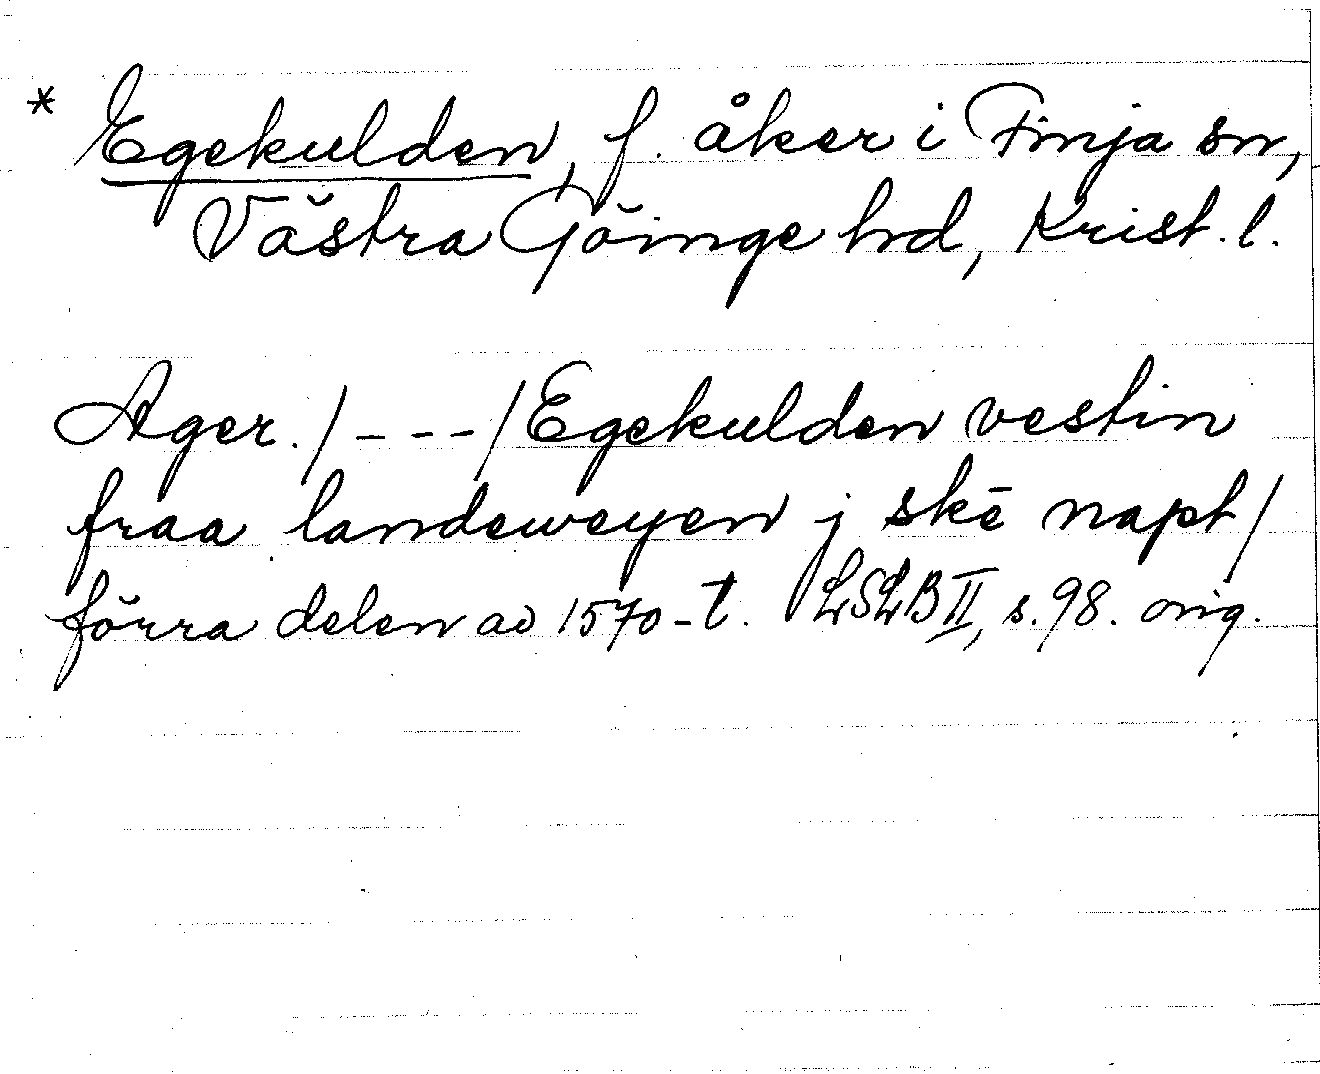 * Egekulden, f. åker i Finja sn,
Västra Göinge hd, Krist. l.
Ager. /---/ Egekulden vestin
fraa landeweyen j skē napt/
förra delen av 1570-t. LSLB II, s. 98. orig.